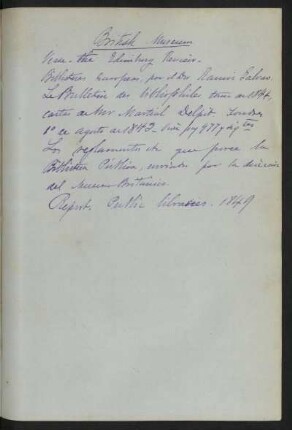 British Museum
Vease the Edimburg Review.
Bibliotecas Europeas, por d. Dn Ramiro
Le Bulletin du bibliophile tomo de 1844,
cartas de Mer Martial Delpit. Londres
1º de agosto de 1843. Vide pag 977 y sig.tes
Los reglamentos de que posee la
Biblioteca Publica, enviados por la direccion
del Museo Britanico.
Report. Public libraries. 1849